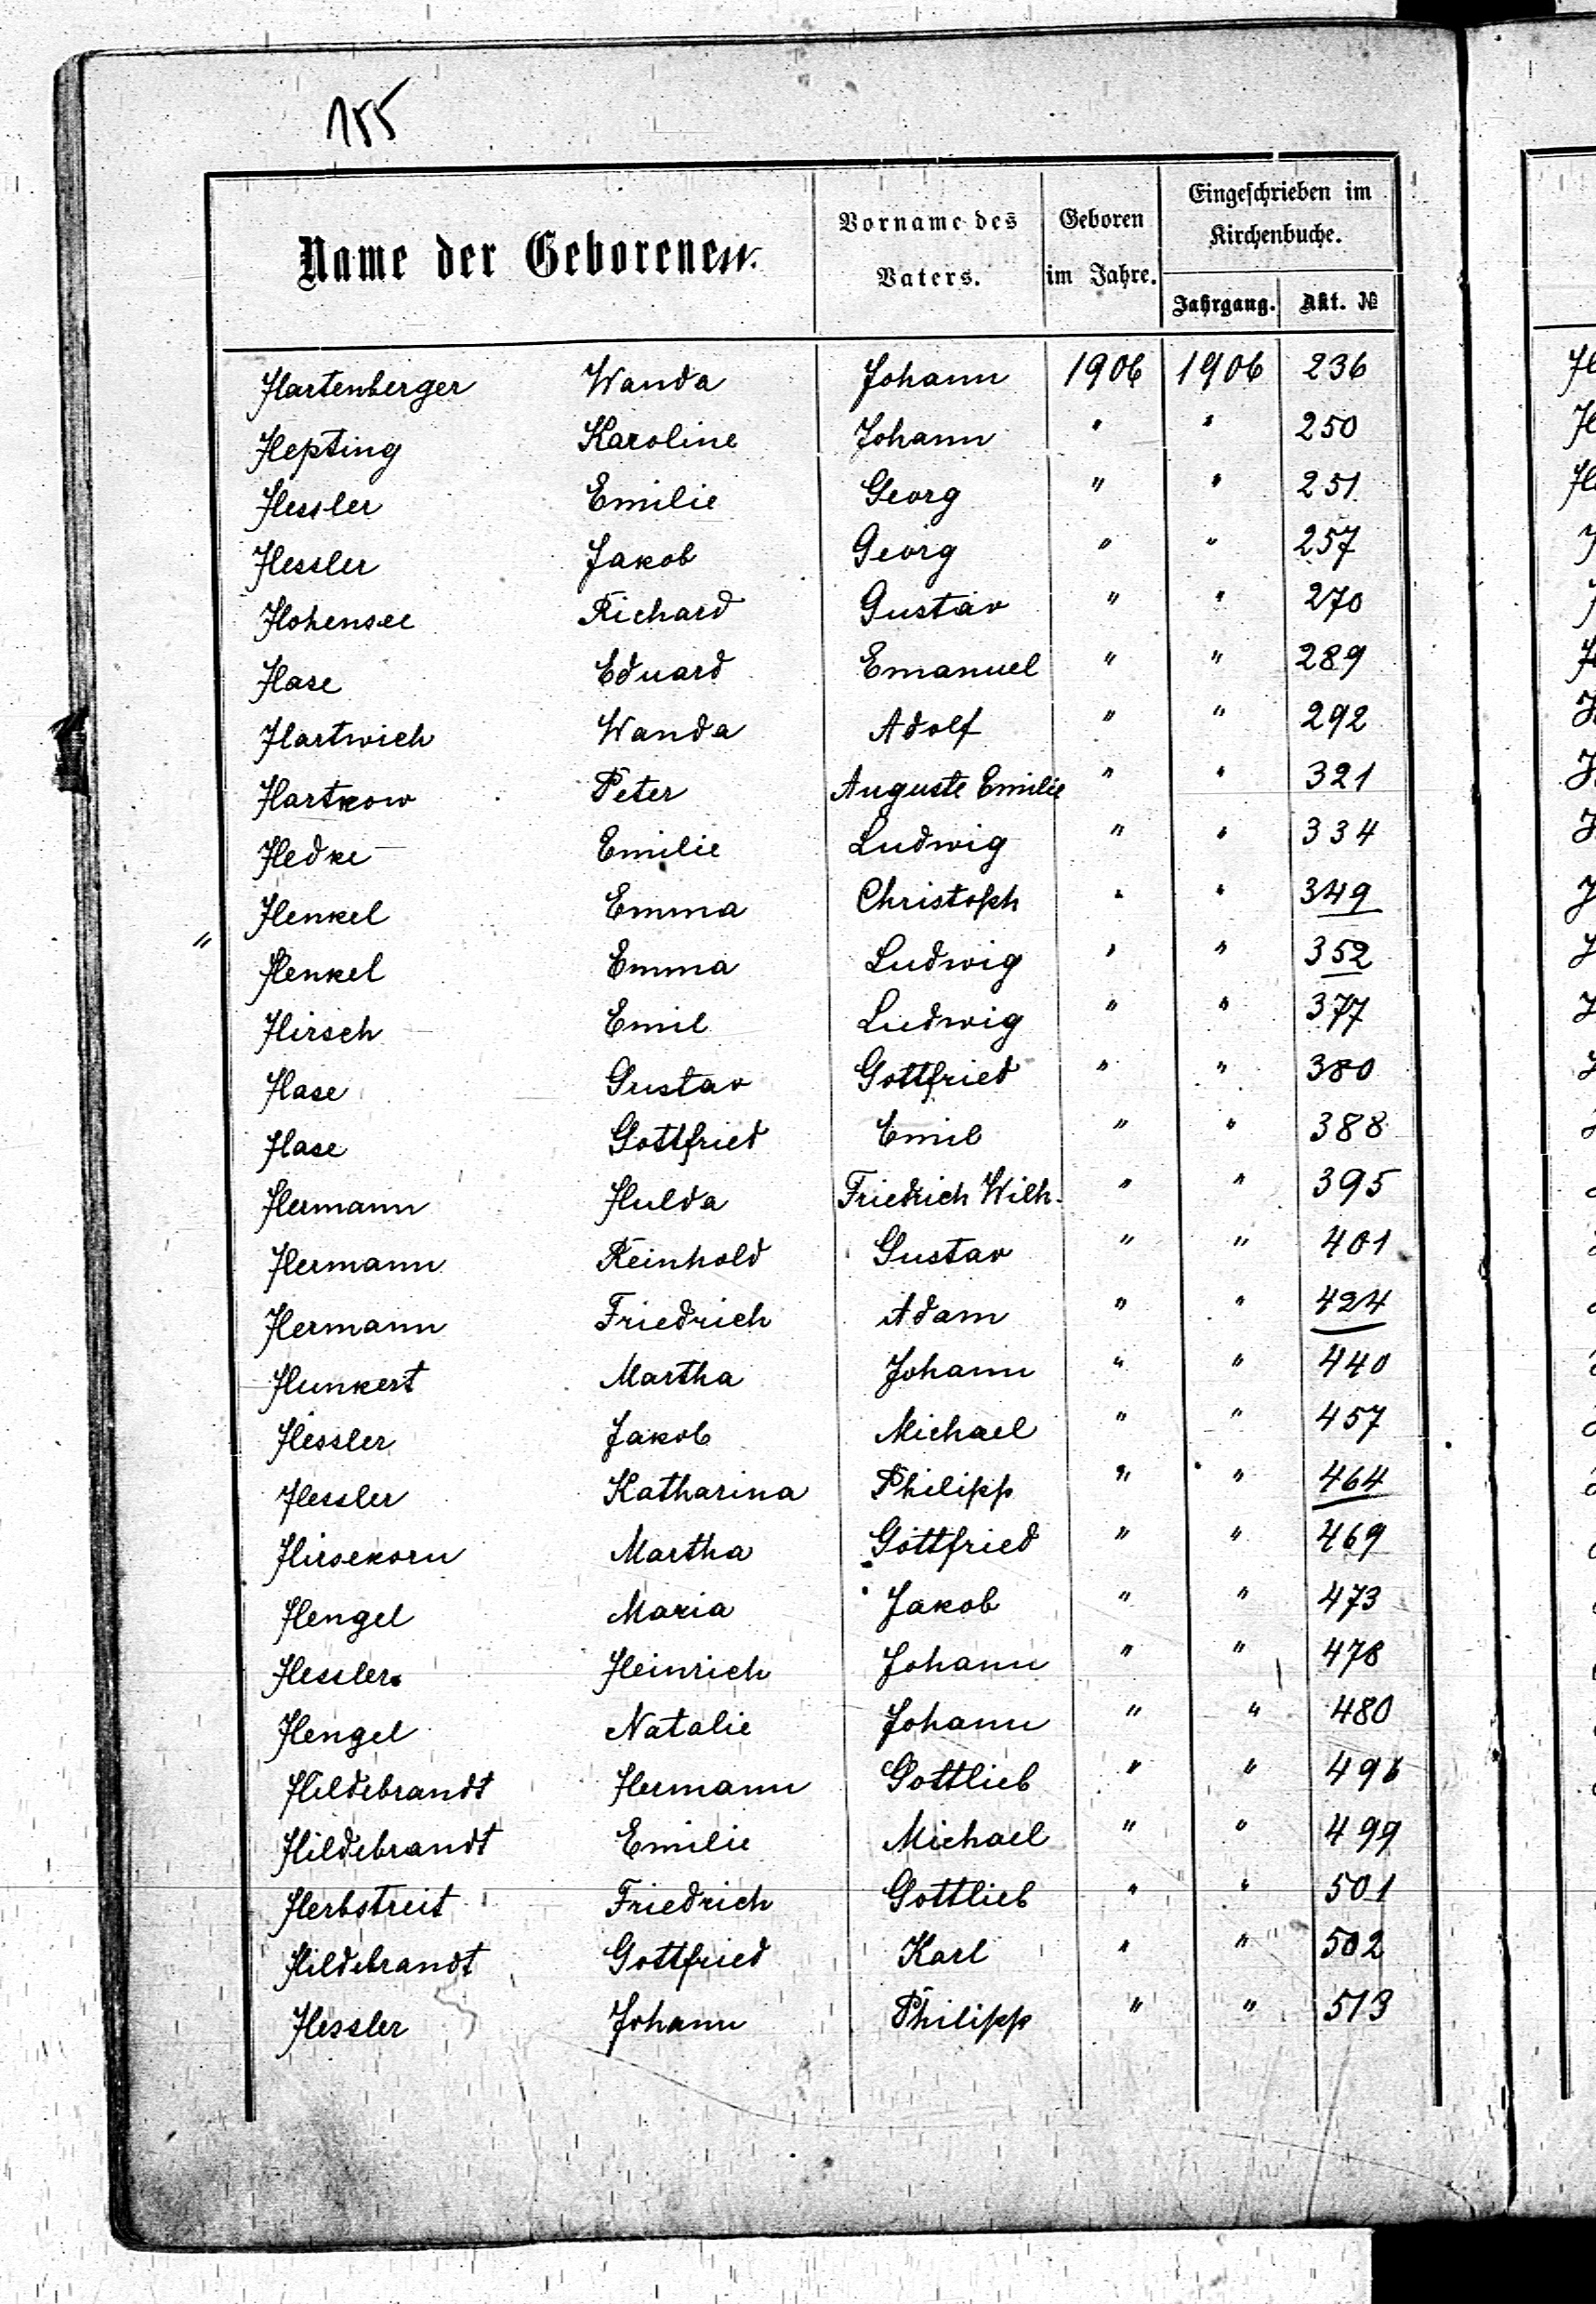 155
Name der Geborenen.
Vorname des Vaters.
Geboren im Jahre.
Eingeschrieben im Kirchenbuche.
Jahrgang. Akt. №
Hartenberger Wanda Johann 1906 1906 236
Hepting Karoline Johann " " 250
Hessler Emilie Georg " " 251
Hessler Jakob Georg " " 257
Hohensee Richard Gustav " " 270
Hase Eduard Emanuel " " 289
Hartwich Wanda Adolf " " 292
Hartkow Peter Auguste Emilie " " 321
Hedke Emilie Ludwig " " 334
Henkel Emma Christoph " " 349
" Henkel Emma Ludwig " " 352
Hirsch Emil Ludwig " " 377
Hase Gustav Gottfried " " 380
Hase Gottfried Emil " " 388
Hermann Hulda Friedrich Wilh. " " 395
Hermann Reinhold Gustav " " 401
Hermann Friedrich Adam " " 424
Hunkert Martha Johann " " 440
Hessler Jakob Michael " " 457
Hessler Katharina Philipp " " 464
Hirsekorn Martha Gottfried " " 469
Hengel Maria Jakob " " 473
Hessler Heinrich Johann " " 478
Hengel Natalie Johann " " 480
Hildebrandt Hermann Gottlieb " " 496
Hildebrandt Emilie Michael " " 499
Herbstreit Friedrich Gottlieb " " 501
Hildebrandt Gottfried Karl " " 502
Hessler Johann Philipp " " 513